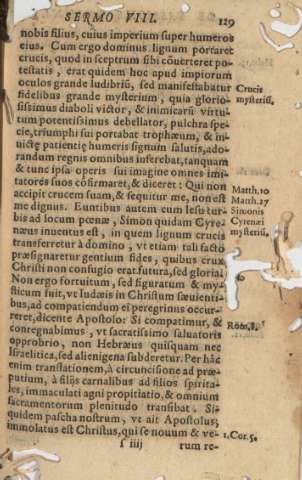 SERMO VIII. 129
nobis filius, cuius imperium super humeros
eius. Cum ergo dominus lignum portaret
crucis, quod in sceptrum sibi cõuerteret po-
testatis, erat quidem hoc apud impiorum
oculos grande ludibriũ, sed manifestabatur
fidelibus grande mysterium, quia glorio-
sissimus diaboli victor, & inimicarũ virtu-
tum potentissimus debellator, pulchra spe-
cie, triumphi sui portabat trophæum, & in-
uictę patientię humeris signum salutis, ado-
randum regnis omnibus inferebat, tanquam
& tunc ipsa operis sui imagine omnes imi-
tatores suos cõfirmaret, & diceret: Qui non
accipit crucem suam, & sequitur me, non est
me dignus. Euntibus autem cum Iesu tur-
bis ad locum pœnæ, Simon quidam Cyre-
næus inuentus est, in quem lignum crucis
transferretur à domino, vt etiam tali facto
præsignaretur gentium fides, quibus crux
Christi non confusio erat futura, sed gloria.
Non ergo fortuitum, sed figuratum & my-
sticum fuit, vt Iudæis in Christum sæuienti-
bus, ad compatiendum ei peregrinus occur-
reret, dicente Apostolo: Si compatimur, &
conregnabimus, vt sacratissimo saluatoris
opprobrio, non Hebræus quisquam nec
Israelitica, sed alienigena subderetur. Per hãc
enim translationem, à circuncisione ad præ-
putium, à filijs carnalibus ad filios spirita-
les, immaculati agni propitiatio, & omnium
sacramentorum plenitudo transibat. Si-
quidem pascha nostrum, vt ait Apostolus,
immolatus est Christus, qui se nouum & ve-
f iiij rum re-
Crucis
mysteriũ.
Matth. 10
Matth. 27
Simonis
Cyrenæi
mysteriũ,
Rom. 8.
1. Cor. 5.